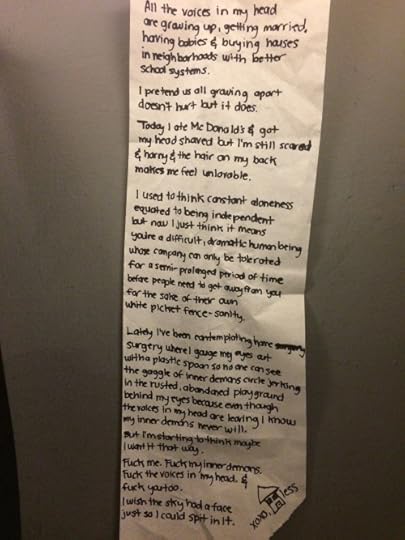 All the voices in my head
are growing up, getting married,
having babies & buying houses
in neighborhoods with better
school systems.
I pretend us all growing apart
doesn't hurt but it does.
Today I ate McDonald's & got
my head shaved but I'm still scared
& horny & the hair on my back
makes me feel unlovable.
I used to think constant aloneness
equated to being independent
but now I just think it means
you're a difficult, dramatic human being
whose company can only be tolerated
for a semi-prolonged period of time
before people need to get away from you
for the sake of their own
white picket fence-sanity.
Lately I've been contemplating home surgery
surgery where I gauge my eyes out
with a plastic spoon so no one can see
the gaggle of inner demons circle jerking
in the rusted, abandoned playground
behind my eyes because even though
the voices in my head are leaving I know
my inner demons never will.
But I'm starting to think maybe
I want it that way.
Fuck me. Fuck my inner demons.
Fuck the voices in my head. &
fuck you too.
I wish the sky had a face
just so I could spit in it.
XOXO,
ess